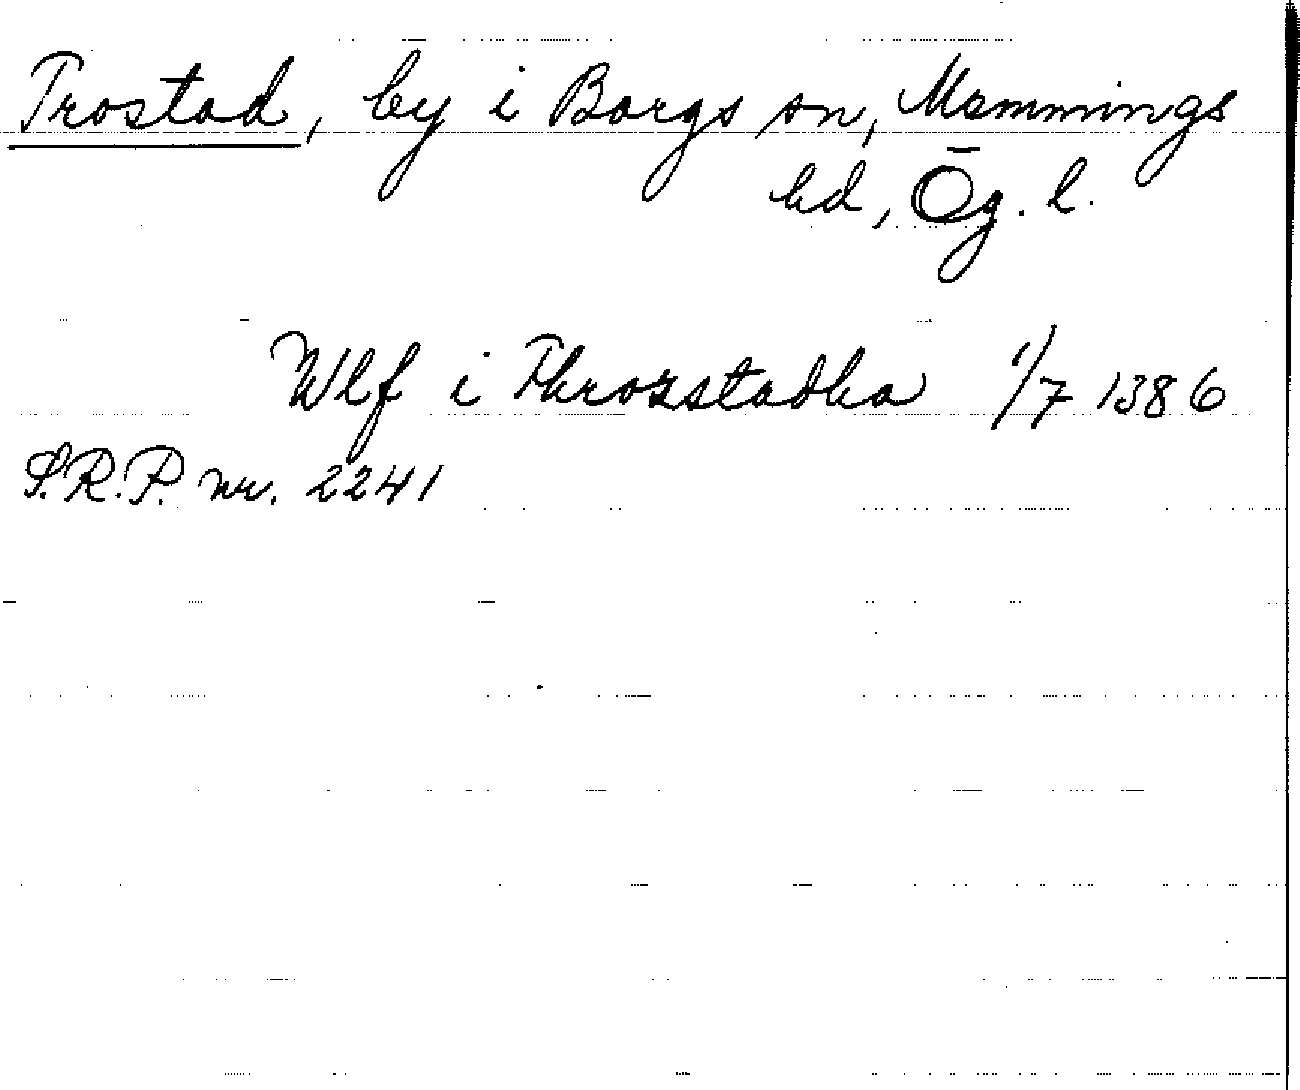 Trostad, by i Borgs sn, Memmings
hd, Ög. l.
Wlf i Throxstadha 1/7 1386
S.R.P. nr. 2241